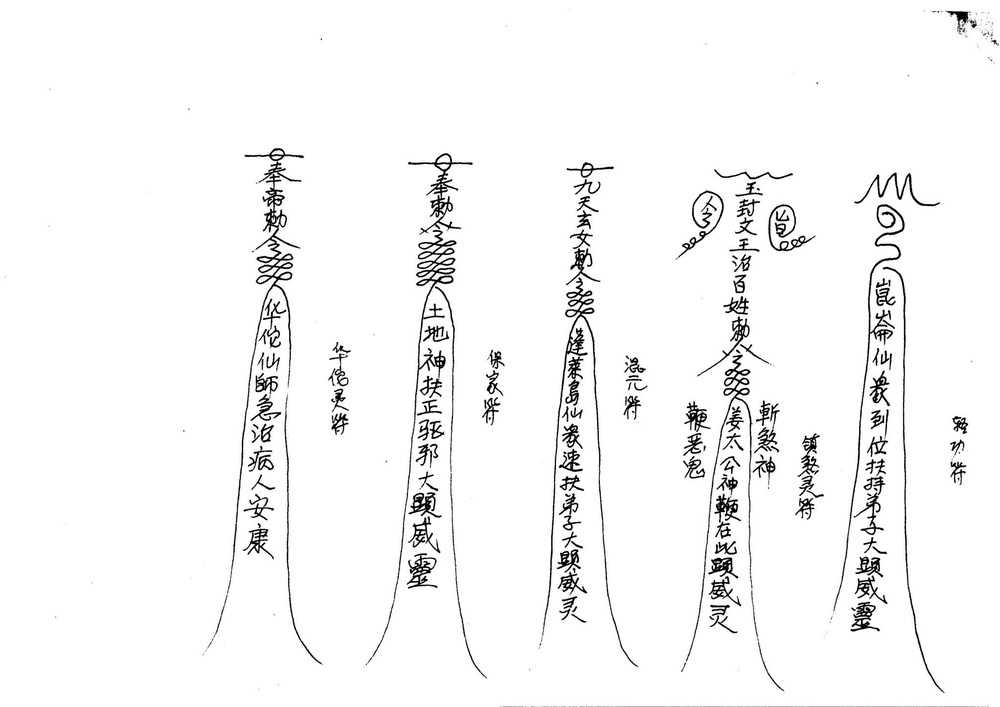 崑崙仙衆到位扶持弟子大顕威靈
轻功符
玉封文王治百姓勅令
令
旨
姜太公神鞭在此顕威灵
斬煞神
鞭恶鬼
镇煞灵符
九天玄女勅令
蓬萊島仙衆速扶弟子大顕威灵
混元符
奉勅令
土地神扶正驱邪大顕威靈
保家符
奉帝勅令
华佗仙師急治病人安康
华佗灵符